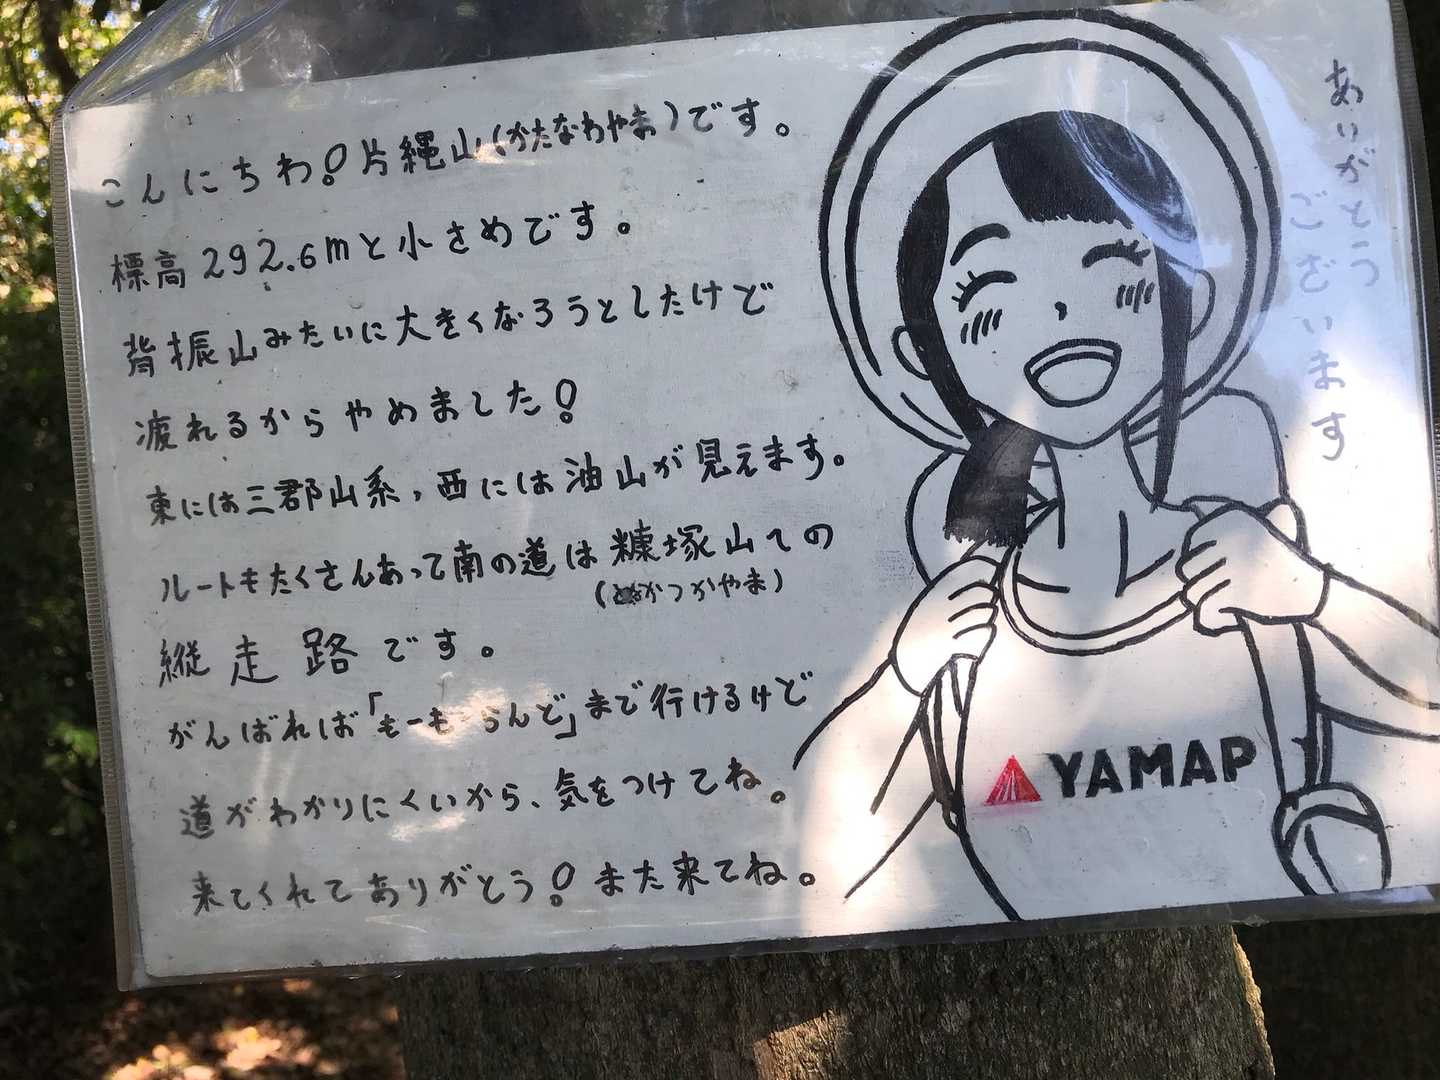 こんにちわ!片縄山(かたなわやま)です。
標高292.6mと小さめです。
背振山みたいに大きくなろうとしたけど
疲れるからやめました!
東には三郡山系,西には油山が見えます。
ルートもたくさんあって南の道は糠塚山への
かつかやま)
縦走路です。
がんばれば「もーもーらんど」まで行けるけど
道がわかりにくいから、気をつけてね。
来てくれてありがとう!また来てね。
ありがとう
ございます
YAMAP